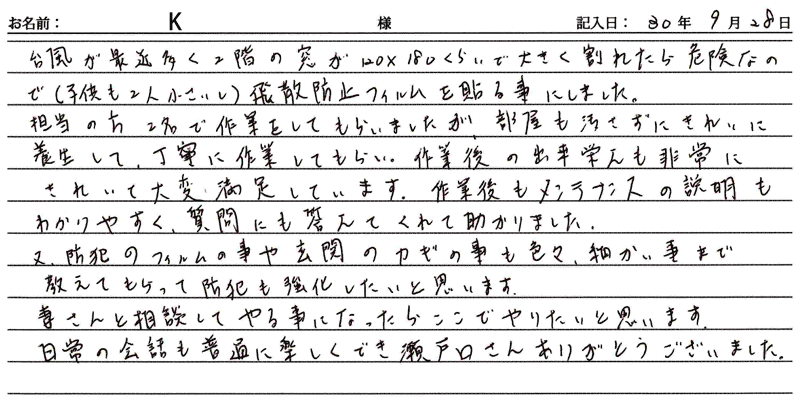 お名前： K 様 記入日： 30年 9月 28日
台風が最近多く2階の窓が120×180くらいで大きく割れたら危険なの
で(子供も2人小さいし)飛散防止フィルムを貼る事にしました。
担当の方2名で作業をしてもらいましたが、部屋も汚さずにきれいに
養生して、丁寧に作業してもらい。作業後の出来栄えも非常に
きれいで大変満足しています。作業後もメンテナンスの説明も
わかりやすく、質問にも答えてくれて助かりました。
又、防犯のフィルムの事や玄関のカギの事も色々、細かい事まで
教えてもらって防犯も強化したいと思います。
妻さんと相談してやる事になったらここでやりたいと思います。
日常の会話も普通に楽しくでき瀬戸口さんありがとうございました。